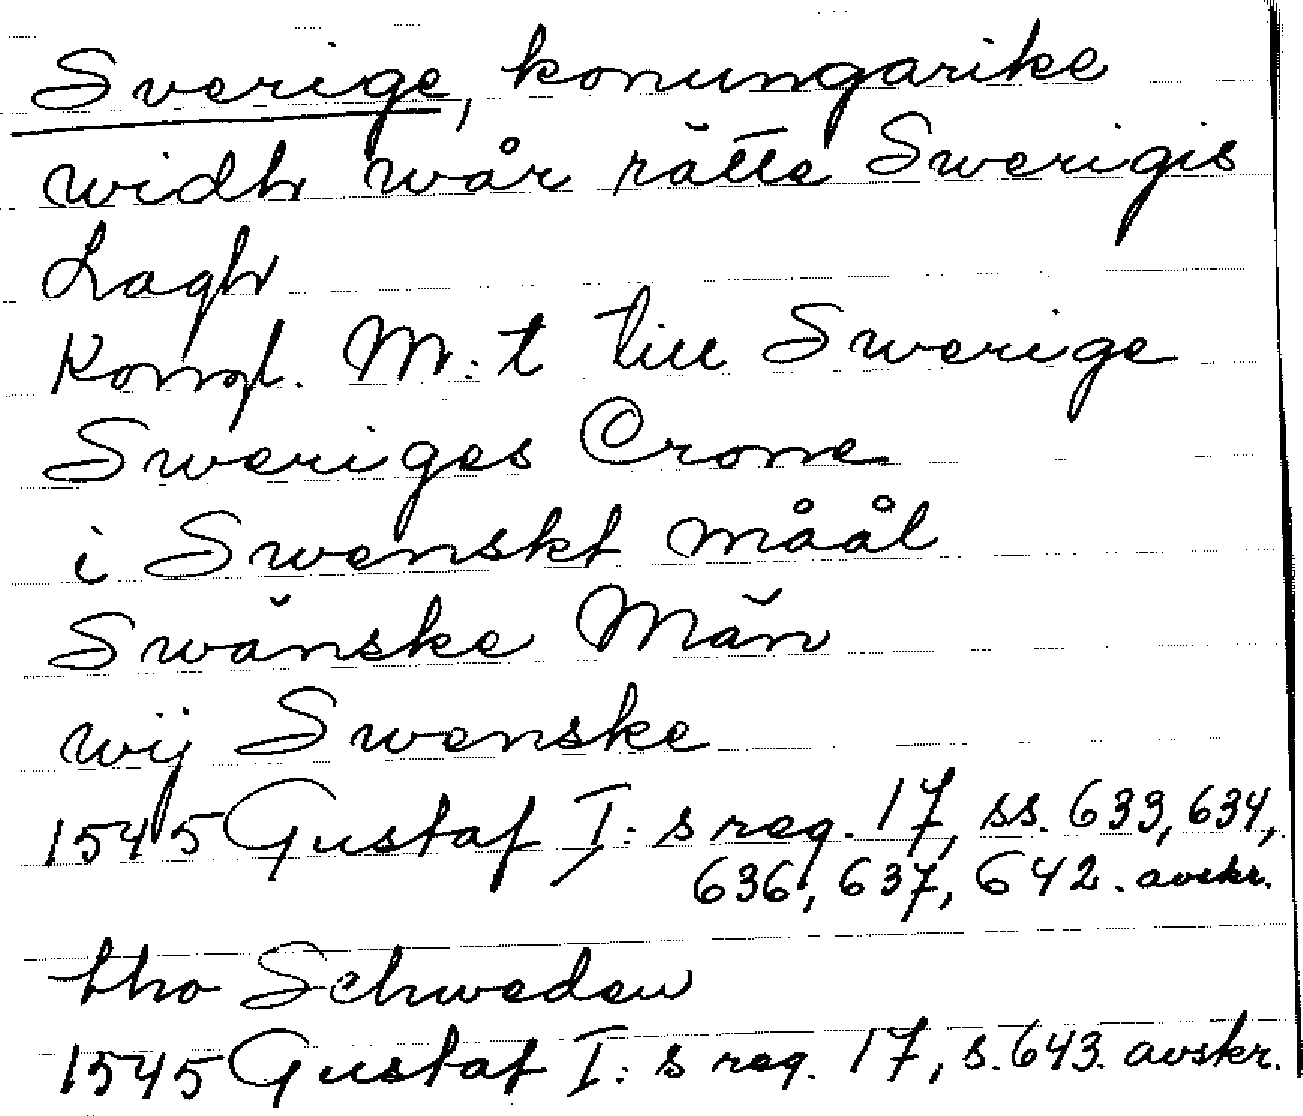 Sverige, konungarike
widh wår rätte Swerigis
Lagh
Kongl. M:t till Swerige
Sweriges Crone
i Swenskt måål
Swänske Män
wij Swenske
1545 Gustaf I:s reg. 17, ss. 633, 634,
636, 637, 642. avskr.
tho Schweden
1545 Gustaf I:s reg. 17, s. 643. avskr.